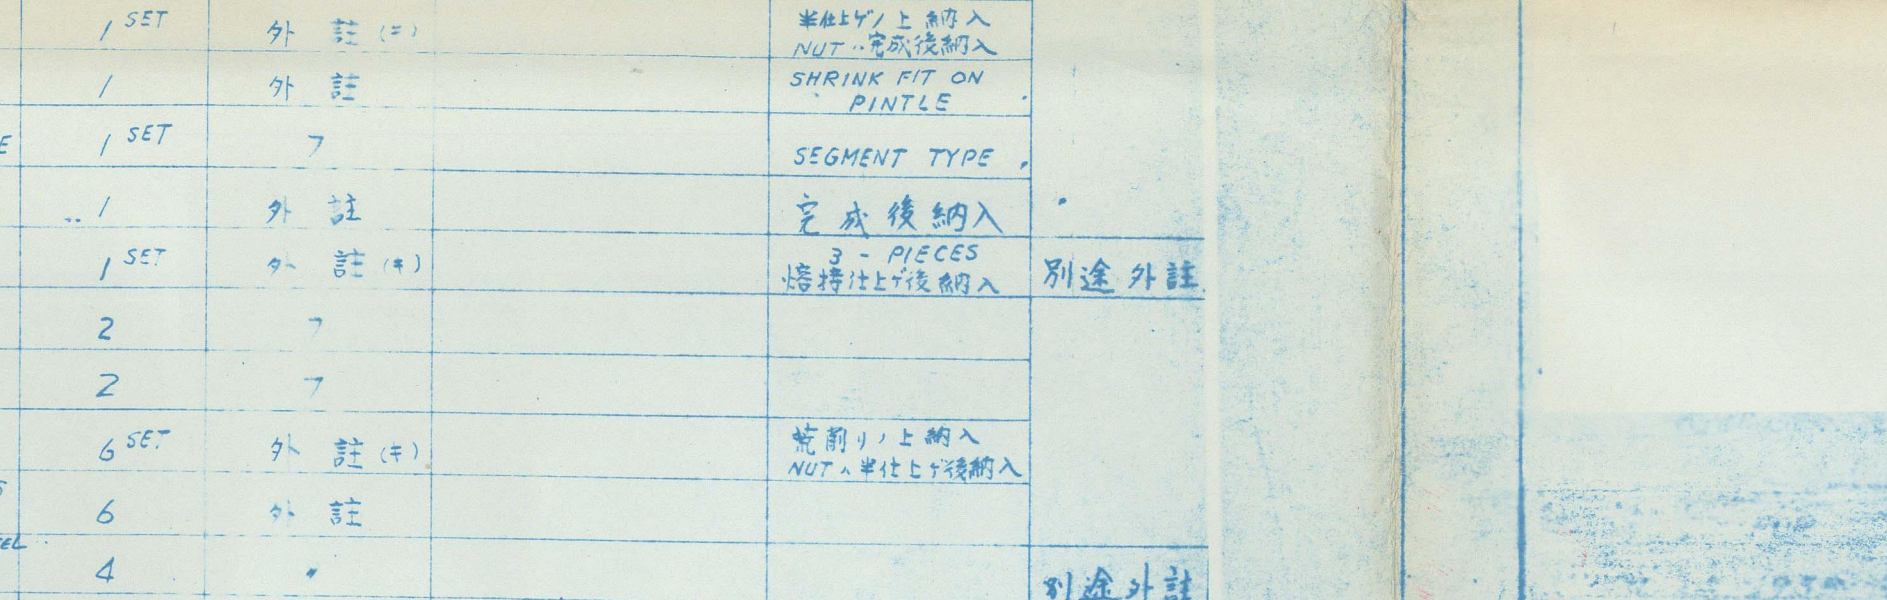 1 SET 外 註 (キ) 半仕上ゲノ上 納入
NUT ハ完成後納入
1 外 註 SHRINK FIT ON
PINTLE
E 1 SET 〃 SEGMENT TYPE
1 外 註 完成後納入
1 SET 外 註 (キ) 3 - PIECES
熔接仕上ゲ後納入 別途外註
2 〃
2 〃
6 SET 外 註 (キ) 荒削リノ上納入
NUT ハ半仕上ゲ後納入
S
6 外 註
EL
4 〃 別途外註